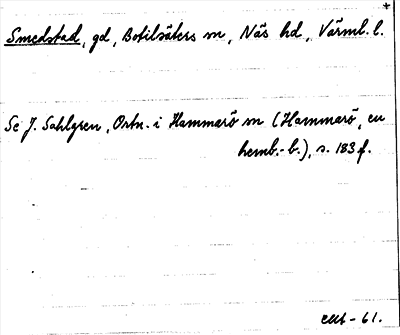 +
Smedstad, gd, Botilsäters sn, Näs hd, Värml. l.
Se J. Sahlgren, Ortn. i Hammarö sn (Hammarö, en
hemb.-b.), s. 183 f.
-61.